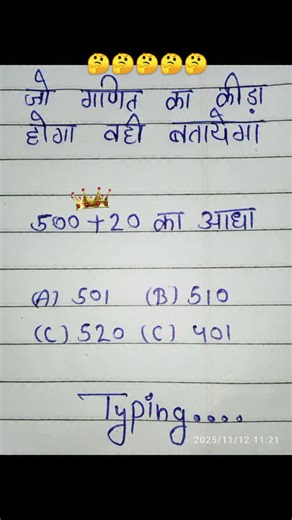 जो गणित का कीड़ा
होगा वही बतायेगा
500+20 का आधा
(A) 501 (B) 510
(C) 520 (C) 401
Typing....
2025/11/12 11:21